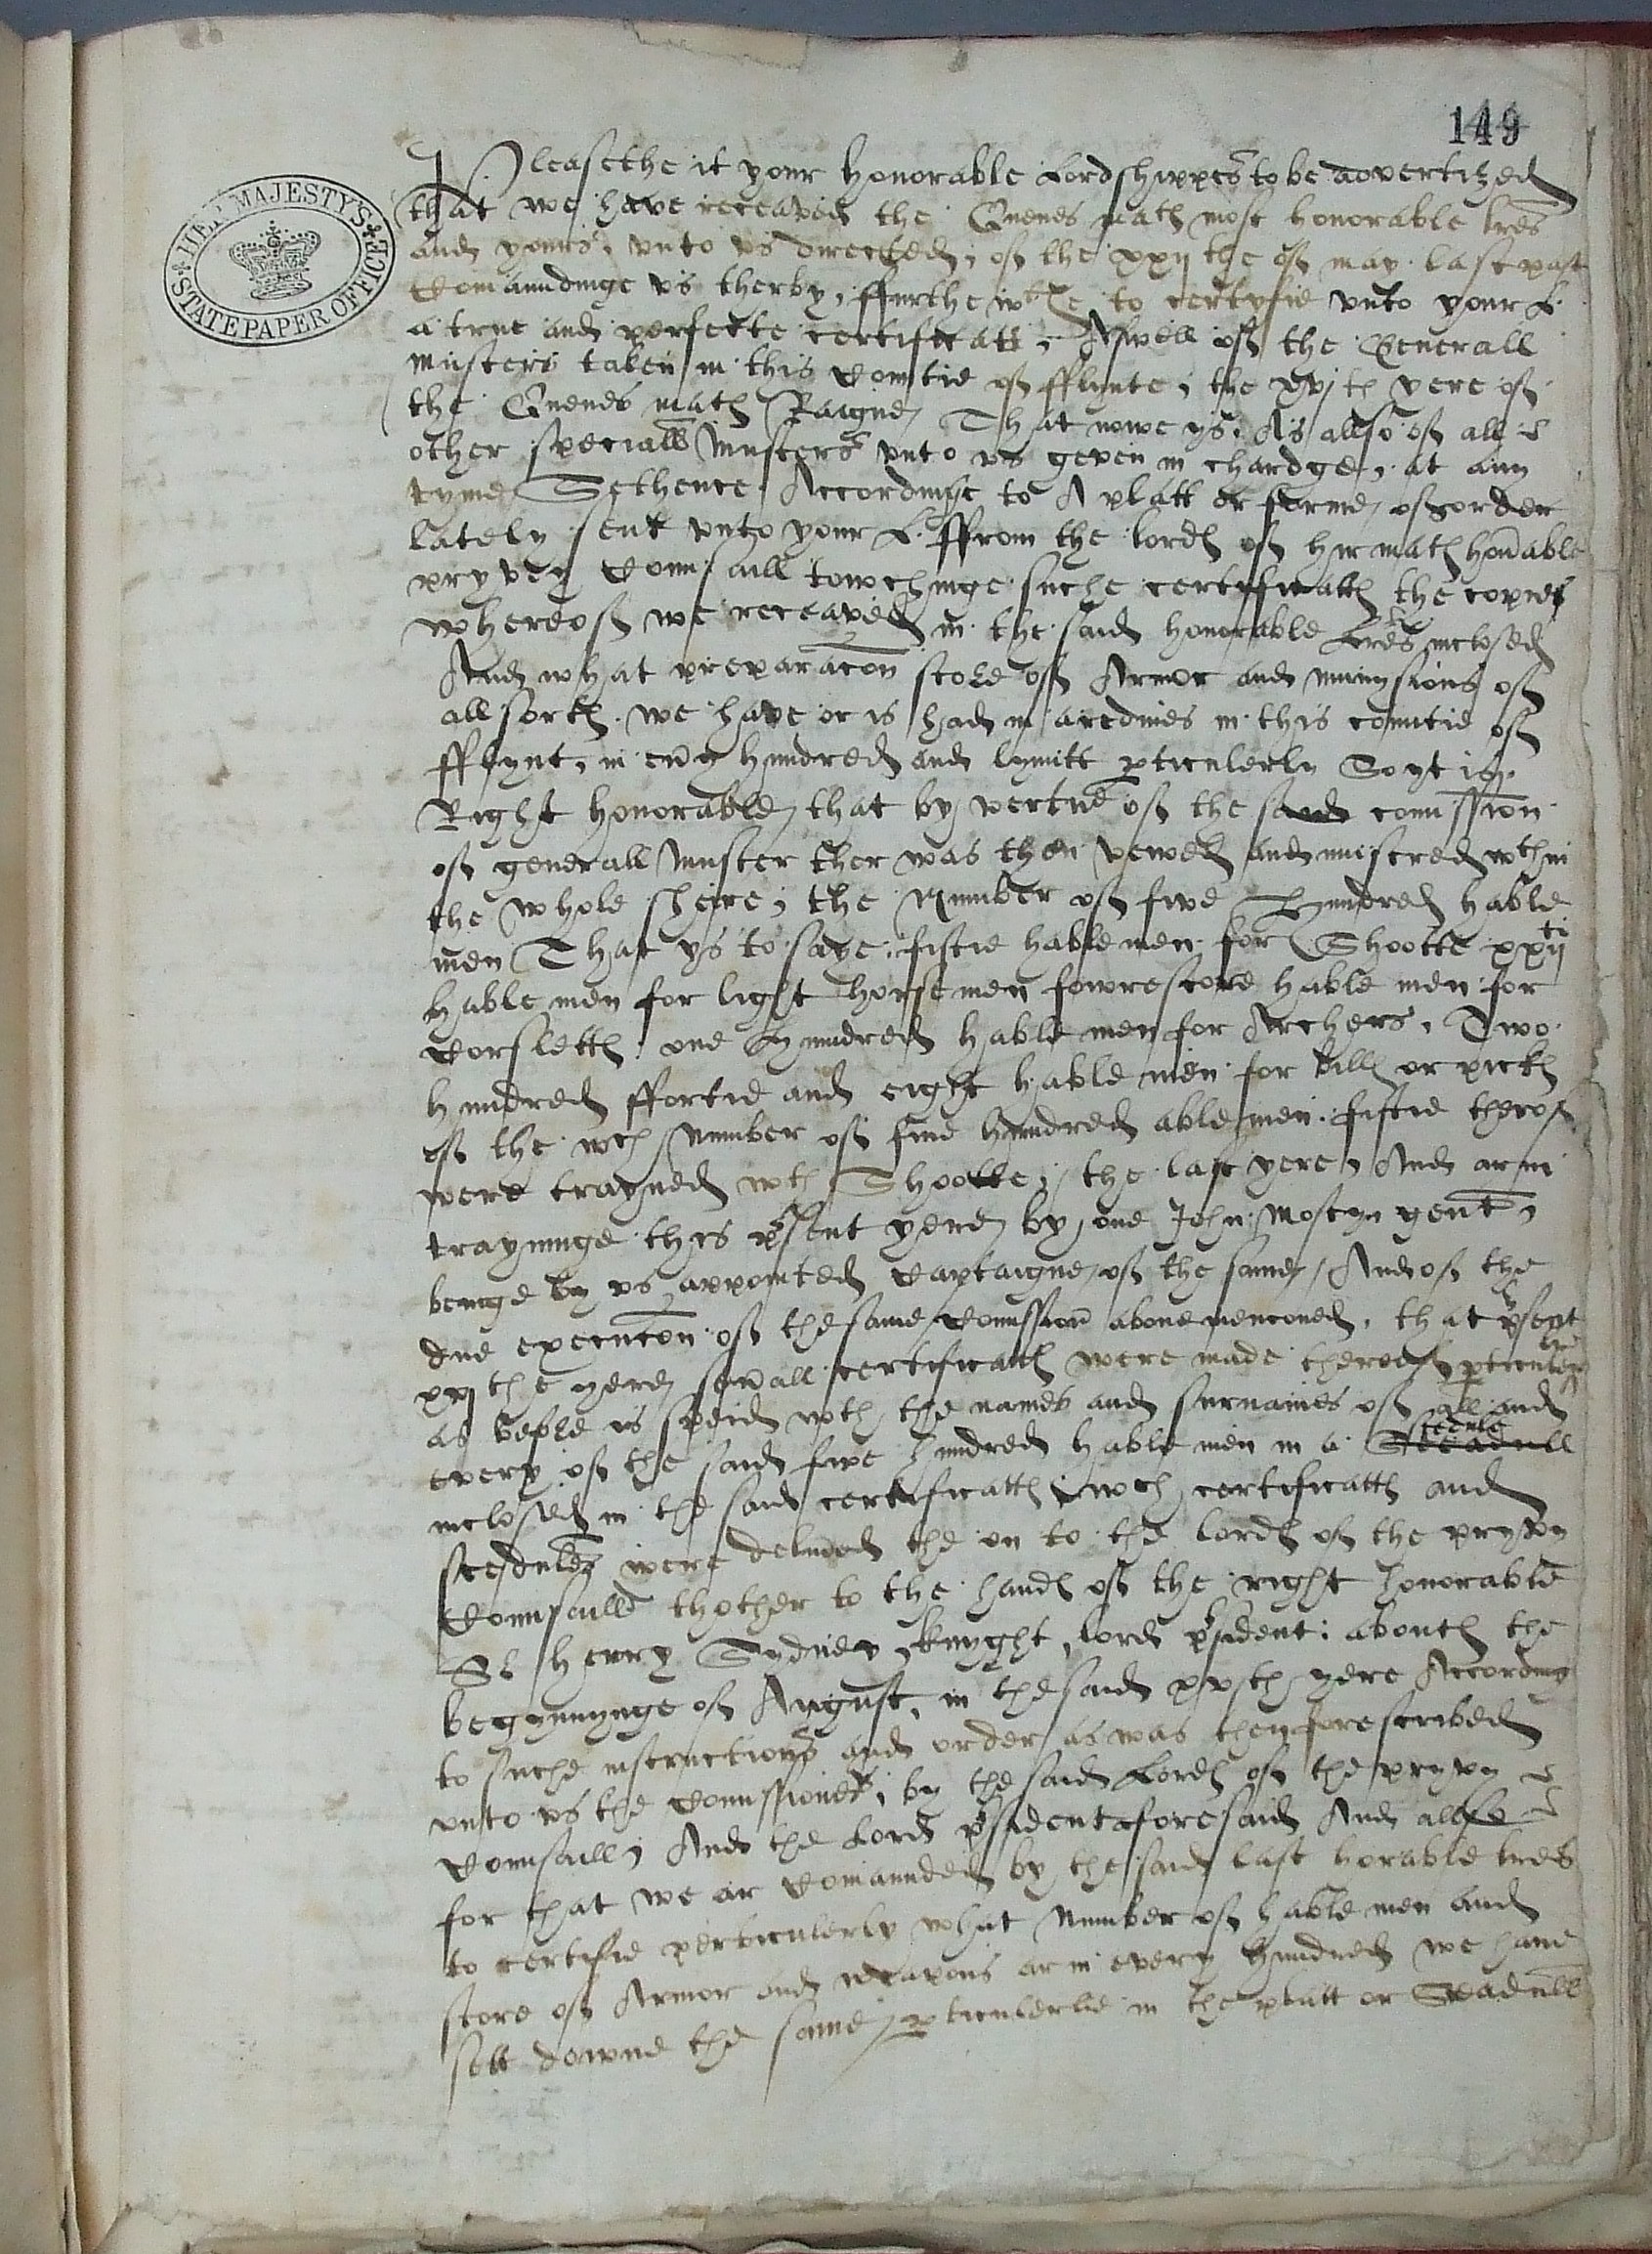 149
HER MAJESTY'S STATE PAPER OFFICE
Pleasethe it your honorable Lordshippes to be advertized
that we have receaved the Quenes matƺ most honorable lres
and yours, vnto vs directed, of the xxijthe of may last past
Comaundinge vs therby, ffurthewthe to certyfie vnto your L.
a true and perfecte certificatt, Aswell of the Generall
musters taken in this Countie of fflynte, the xvjth yere of
the Quenes matƺ Raigne, That nowe ys, As allso of all
other speciall Musters vnto vs geven in chardge, at any
tyme Sethence Accordinge to A platt or forme of order
lately sent vnto your L. ffrom the lordes of hir matƺ honable
pryvey Counsaill towchinge suche certyficattes the copies
whereof we receaved in the said honorable Lres inclosed
And what preparacon store of Armor and munysions of
all sortes we have or is had in aredines in this countie of
fflynt, in euy hundred and lymitt pticulerly So yt is
Right honorable that by vertue of the said comission
of generall Muster ther was then vewed and mustred wthin
the whole sheire, the Number of five Hundred hable
men That ys to saye, fiftie hable men for Shootte xxijti
hable men for light horsemen fowrescore hable men for
Corslettes, one hundred hable men for Archers, Two
hundred ffortie and eight hable men for billes or pickes
of the wch Number of five hundred able men, fiftie therof
were trayned wth Shootte, the last yere, And ar in
trayninge this psent yere by one John Mostyn gent,
beinge by vs appointed Captaigne of the same, And of the
due execucon of the same Comission aboue mencioned, that psent
xvj the yere seuall certificattes were made thereof pticulerly
as before is speid wth the names and surnames of all and
every of the said five hundred hable men in a Sceadull scedule
inclosed in the said certyficattes, wch certificattes and
scedules were deliuered the on to the lordes of the pryvy
Counsaill thother to the handes of the right honorable
Sr Henry Sydney, knyght, lord psident, aboutes the
begynnynge of August, in the said xvjth yere According
to suche instructions and order as was then forescribed
vnto vs the Comissioners, by the said Lordes of the pryvy
Counsaill, And the Lord psident aforesaid And allso
for that we ar Comaunded by the said last horable lres
to certifie perticulerly what Number of hable men and
store of Armor and weapons ar in every hundred we haue
sett downe the same pticulerlie in the platt or Sceadull